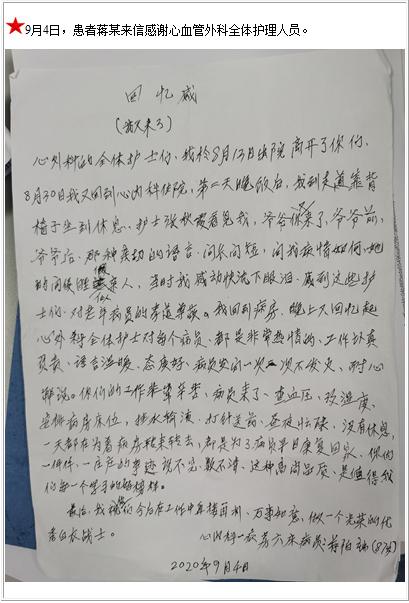 ★9月4日，患者蒋某来信感谢心血管外科全体护理人员。
回忆感
(我又来了)
心外科的全体护士们、我於8月13日出院离开了你们、
8月30日我又回到心内科住院，第二天晚饭后，我到走道靠背
椅子坐到休息、护士张秋霞看见我，爷爷你来了，爷爷前，
爷爷后、那种亲切的语言、问长问短，问我病情如何、她
的问候胜似亲人、当时我感动快流下眼泪、感到这些护
士们、对老年病员的孝道尊敬。我回到病房、晚上又回忆起
心外科全体护士对每个病员、都是非常热情的、工作认真
负责、语言温暖、态度好、病员发问一次二次不发火、耐心
解说。你们的工作非常辛苦、病员来了、查血压、改温度、
安排病房床位，挂水输液、打针送药、昼夜忙碌、没有休息，
一天都在为着病房转来转去，都是为了病员早日康复回家、你们
一件件、一庄庄的事迹说不完、数不清、这种高尚品质、是值得我
们每一个学习的好榜样。
最后、我祝你们今后在工作中再接再利、万事如意、做一个光荣的代
者白衣战士。
心内科一病房六床病员：蒋 (87岁)
2020年9月4日